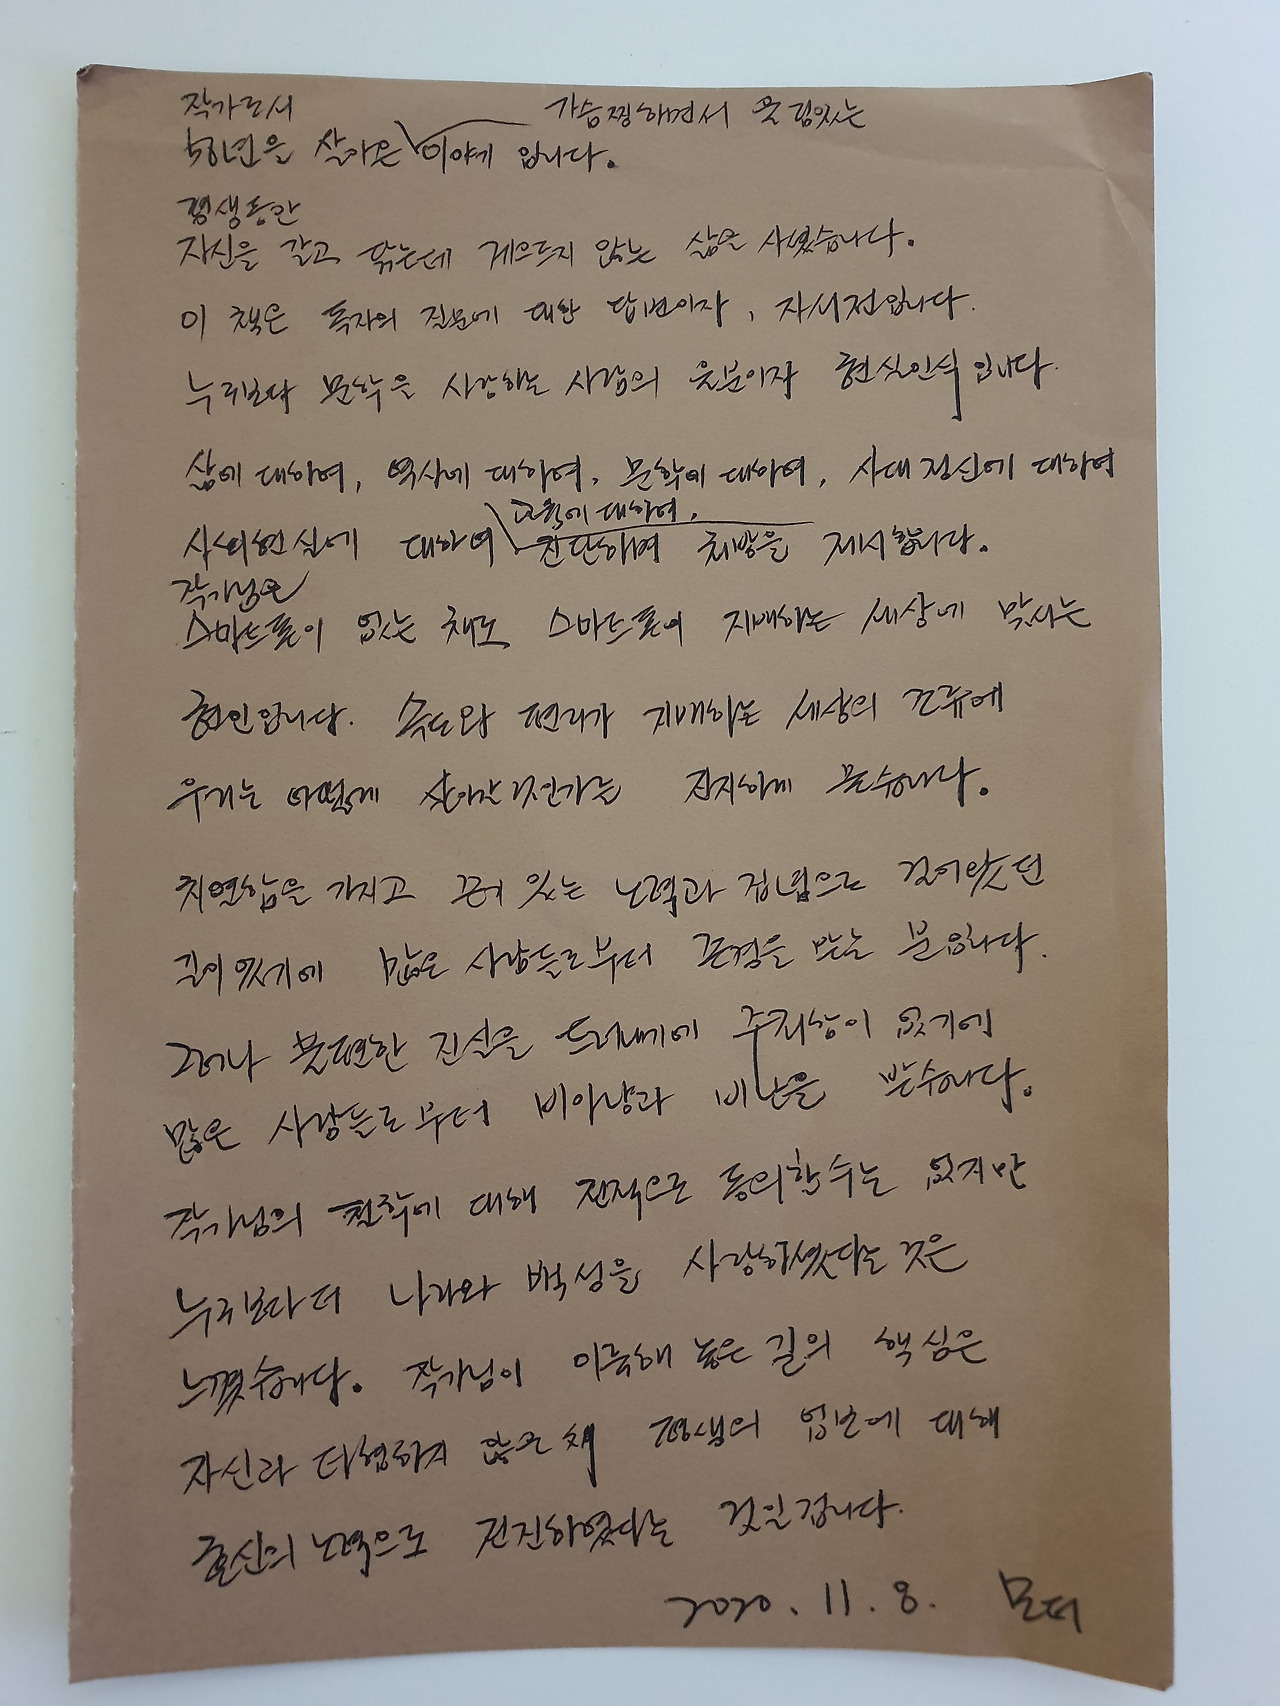 작가로서 가슴찡하면서 큰 힘있는
50년을 살아온 이야기 입니다.
평생동안
자신을 갈고 닦는데 게으르지 않는 삶을 사셨습니다.
이 책은 독자의 질문에 대한 답변이자, 자서전입니다.
누구보다 문학을 사랑하는 사람의 울분이자 현실인식입니다.
삶에 대하여, 역사에 대하여, 문학에 대하여, 시대정신에 대하여
교육에 대하여,
사회현실에 대하여 진단하며 처방을 제시합니다.
작가님은
스마트폰이 없는 채로 스마트폰이 지배하는 세상에 맞서는
현인입니다. 속도와 편리가 지배하는 세상의 조류에
우리는 어떻게 살아갈것인가를 진지하게 묻습니다.
치열함을 가지고 끈기 있는 노력과 집념으로 걸어왔던
길이 있기에 많은 사람들로부터 존경을 받는 분입니다.
그러나 불편한 진실을 드러냄에 주저함이 없기에
많은 사람들로부터 비아냥과 비난을 받습니다.
작가님의 철학에 대해 전적으로 동의할수는 없지만
누구보다 더 나라와 백성을 사랑하셨다는 것은
느꼈습니다. 작가님이 이룩해 놓은 길의 핵심은
자신과 타협하지 않은 채 평생의 업보에 대해
혼신의 노력으로 전진하였다는 것일겁니다.
2020. 11. 8. 모터